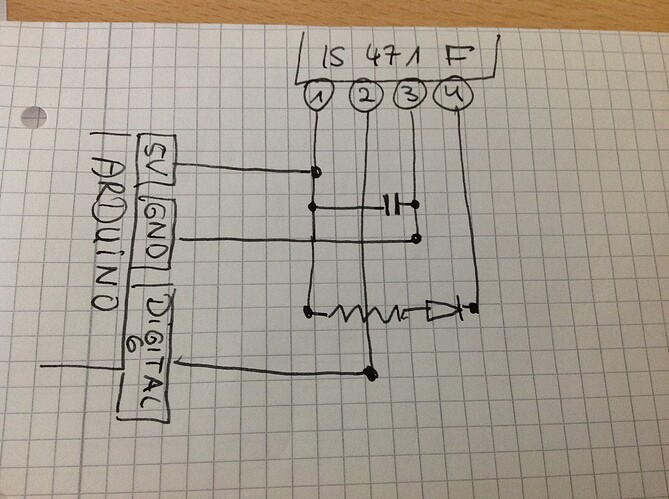 IS 471 F
1 2 3 4
5V
GND
DIGITAL
6
ARDUINO